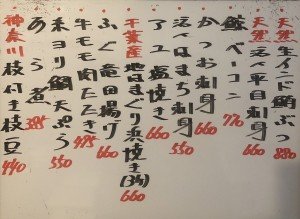 天然生インド鮪ぶつ 880
天然活〆平目刺身 770
鯨ベーコン 770
かつお刺身 660
活〆はまち刺身 550
アユ塩焼き 660
千葉産地はまぐり浜焼き(3ヶ) 660
ふぐ竜田揚げ 660
牛モモ肉たたき 495
禾ヨリ鯛天ぷら 550
あら煮 385
神奈川枝付き枝豆 440